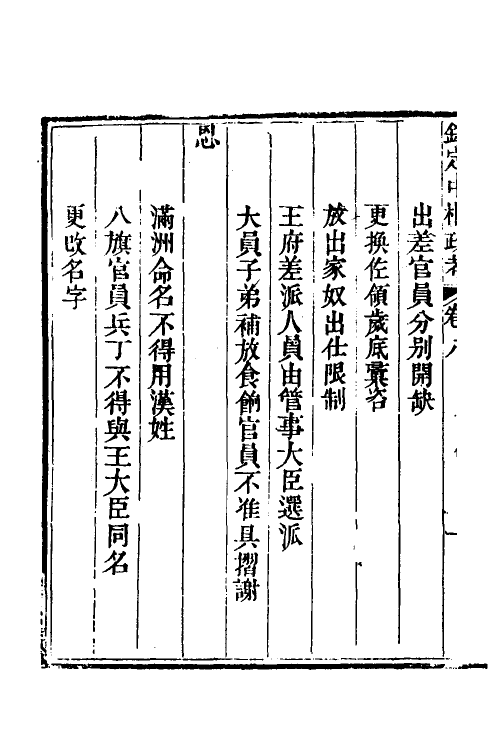 欽定中樞政考 卷八
出差官員分別開缺
更換佐領歲底彙咨
放出家奴出仕限制
王府差派人員由管事大臣選派
大員子弟補放食餉官員不准具摺謝
恩
滿洲命名不得用漢姓
八旗官員兵丁不得與王大臣同名
更改名字